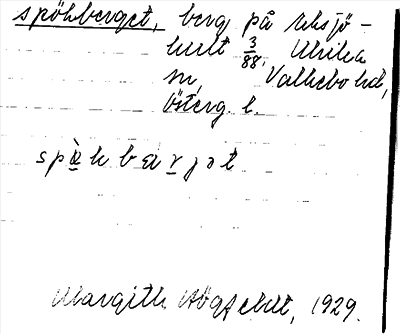 spökberget, berg på Uksjö-
hult 3/88, Ulrika
sn, Valkebo hd,
Österg. l.
spö̀kbærjət
Margith Högfeldt, 1929.